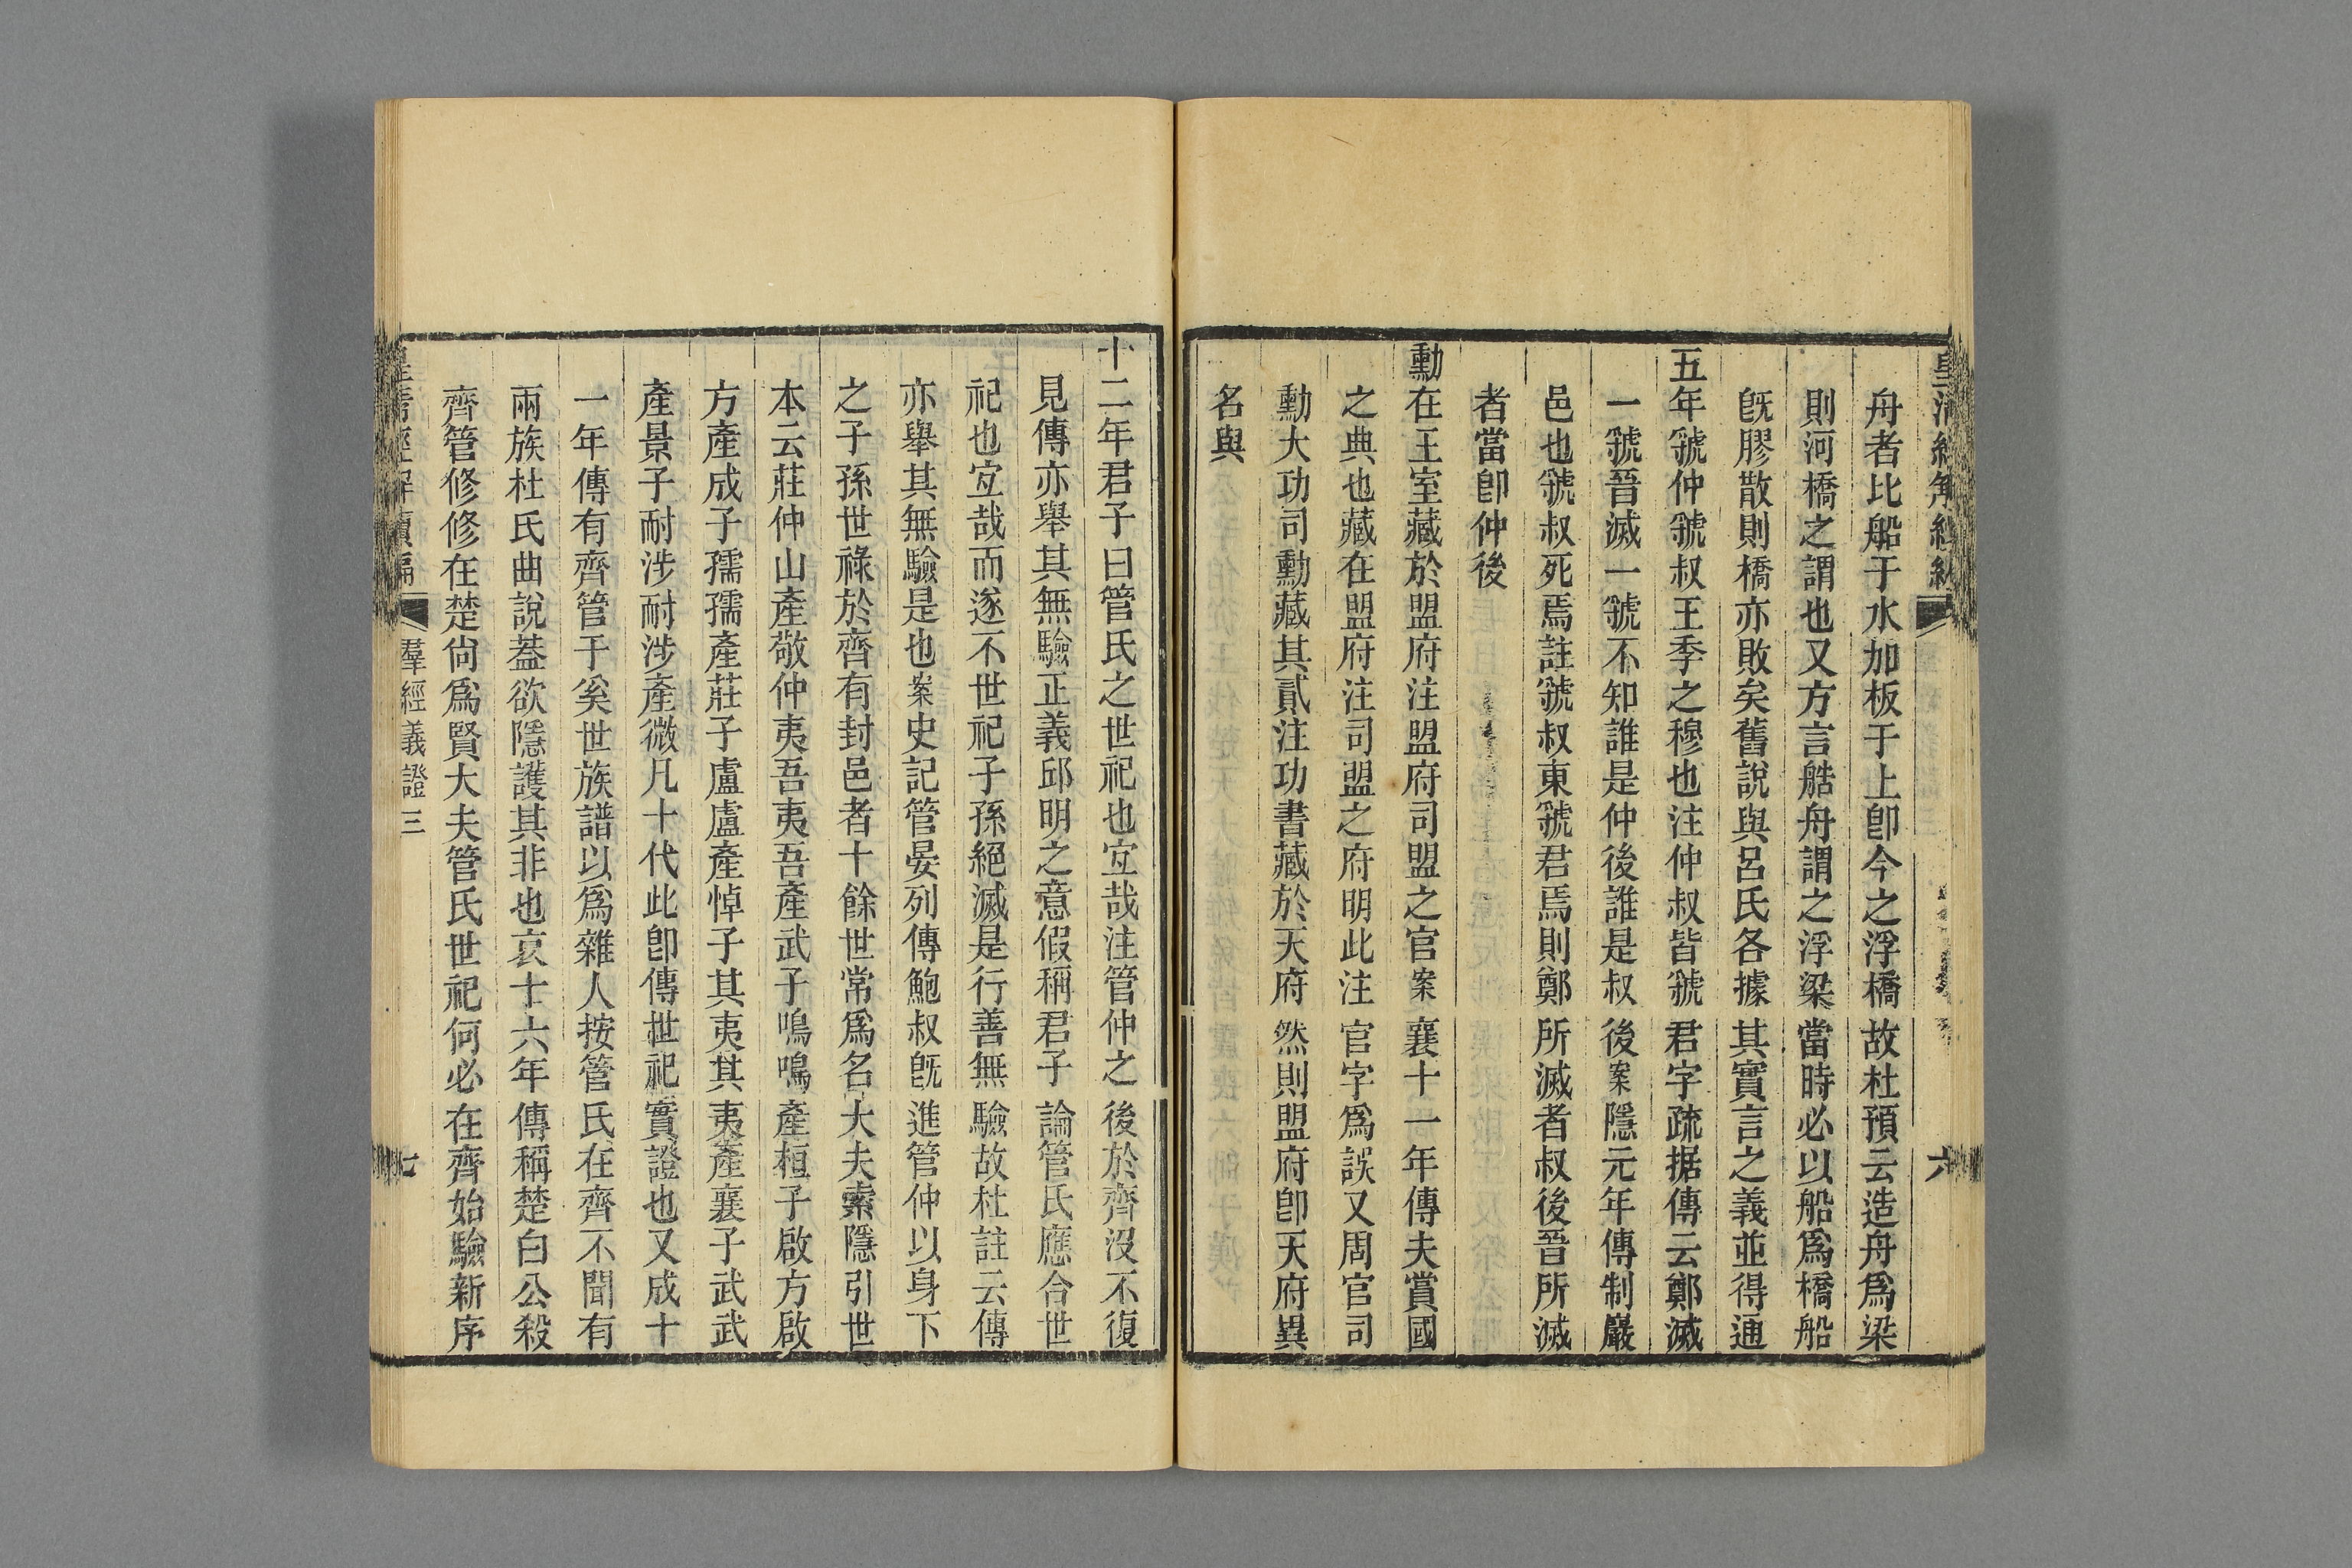 舟者比船于水加板于上卽今之浮橋故杜預云造舟爲梁
則河橋之謂也又方言艁舟謂之浮梁當時必以船爲橋船
旣膠散則橋亦敗矣舊說與呂氏各據其實言之義並得通
五年虢仲虢叔王季之穆也注仲叔皆虢君字疏据傳云鄭滅
一虢晉滅一虢不知誰是仲後誰是叔後案隱元年傳制巖
邑也虢叔死焉註虢叔東虢君焉則鄭所滅者叔後晉所滅
者當卽仲後
勳在王室藏於盟府注盟府司盟之官案襄十一年傳夫賞國
之典也藏在盟府注司盟之府明此注官字爲誤又周官司
勳大功司勳藏其貳注功書藏於天府然則盟府卽天府異
名與
十二年君子曰管氏之世祀也宐哉注管仲之後於齊沒不復
見傳亦舉其無驗正義邱明之意假稱君子論管氏應合世
祀也宐哉而遂不世祀子孫絕滅是行善無驗故杜註云傳
亦舉其無驗是也案史記管晏列傳鮑叔旣進管仲以身下
之子孫世祿於齊有封邑者十餘世常爲名大夫索隱引世
本云莊仲山產敬仲夷吾夷吾產武子鳴鳴產桓子啟方啟
方產成子孺孺產莊子盧盧產悼子其夷其夷產襄子武武
產景子耐涉耐涉產微凡十代此卽傳世祀實證也又成十
一年傳有齊管于奚世族譜以爲雜人按管氏在齊不聞有
兩族杜氏曲說葢欲隱護其非也哀十六年傳稱楚白公殺
齊管修修在楚尙爲賢大夫管氏世祀何必在齊始驗新序
羣經義證三
七